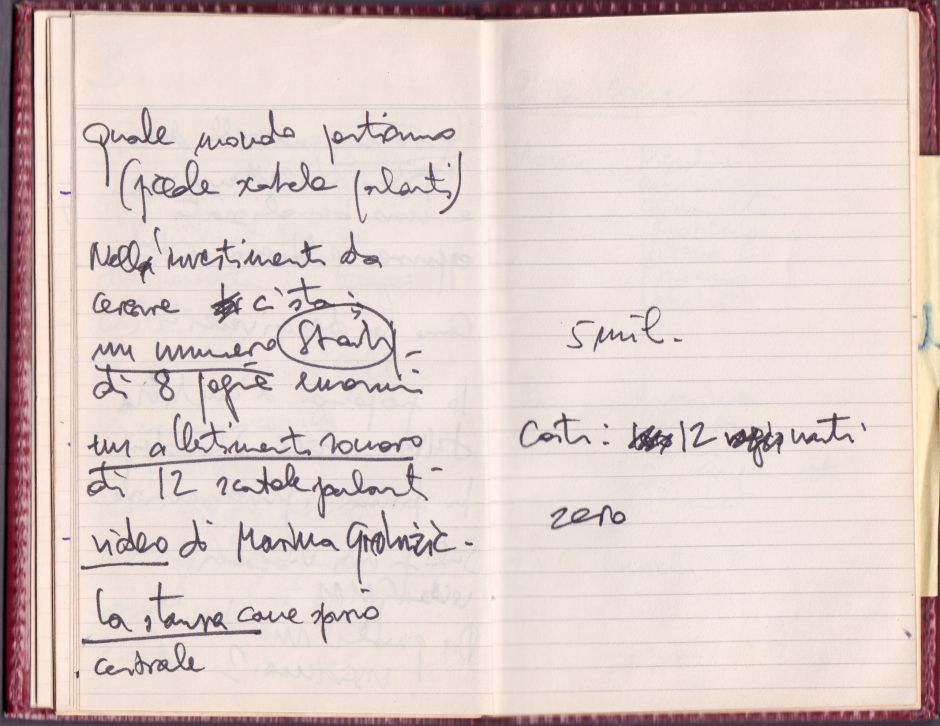 Quale mondo portiamo
(piccole scatole parlanti)
Nell'investimento da
cercare c'sta:
un numero Strazi
di 8 pagine enormi
un allestimento sonoro
di 12 scatole parlanti
video di Marina Gržinić -
la stanza come spazio
centrale
5 mil.
Costi: 12 nastri
zero